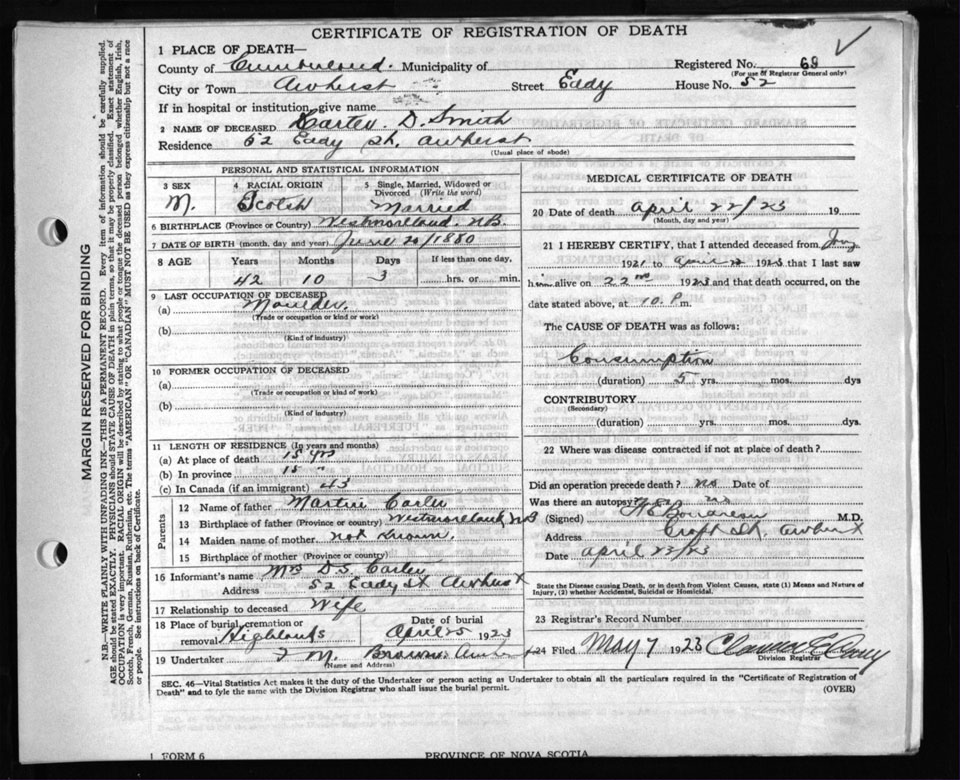 CERTIFICATE OF REGISTRATION OF DEATH
1 PLACE OF DEATH—
County of Cumberland. Municipality of
Registered No. 68
(For use of Registrar General only)
City or Town Amherst Street Eddy House No. 52
If in hospital or institution, give name
2 NAME OF DECEASED Carter D. Smith
Residence 52 Eddy St, Amherst
(Usual place of abode)
PERSONAL AND STATISTICAL INFORMATION
3 SEX 4 RACIAL ORIGIN 5 Single, Married, Widowed or Divorced (Write the word)
M. Scotch Married
6 BIRTHPLACE (Province or Country) Westmorland, N.B.
7 DATE OF BIRTH (month, day and year) June 20/1880
8 AGE Years Months Days If less than one day,
42 10 3 hrs. or min.
9 LAST OCCUPATION OF DECEASED
(a) Moulder.
(Trade or occupation or kind of work)
(b)
(Kind of industry)
10 FORMER OCCUPATION OF DECEASED
(a)
(Trade or occupation or kind of work)
(b)
(Kind of industry)
11 LENGTH OF RESIDENCE (In years and months)
(a) At place of death 15 yrs
(b) In province 15 "
(c) In Canada (if an immigrant) 43
Parents
12 Name of father Martin Carter
13 Birthplace of father (Province or country) Westmorland, NB
14 Maiden name of mother not known.
15 Birthplace of mother (Province or country)
16 Informant's name Mrs D.S. Carter
Address 52 Eddy St Amherst
17 Relationship to deceased Wife
18 Place of burial, cremation or removal Highlands Date of burial April 25 1923
19 Undertaker J M. Brown. Amherst
(Name and Address)
MEDICAL CERTIFICATE OF DEATH
20 Date of death April 22/23 19
(Month, day and year)
21 I HEREBY CERTIFY, that I attended deceased from
1921 to April 22 1923 that I last saw
him alive on 22nd 1923 and that death occurred, on the
date stated above, at 10. P. m.
The CAUSE OF DEATH was as follows:
Consumption
(duration) 5 yrs. mos. dys
CONTRIBUTORY
(Secondary)
(duration) yrs. mos. dys.
22 Where was disease contracted if not at place of death?
Did an operation precede death? no Date of
Was there an autopsy? no
(Signed) M.D.
Address Croft St. Amherst
Date April 23/23
State the Disease causing Death, or in death from Violent Causes, state (1) Means and Nature of Injury, (2) whether Accidental, Suicidal or Homicidal.
23 Registrar's Record Number
24 Filed May 7 1923
Division Registrar
SEC. 46—Vital Statistics Act makes it the duty of the Undertaker or person acting as Undertaker to obtain all the particulars required in the "Certificate of Registration of
Death" and to fyle the same with the Division Registrar who shall issue the burial permit.
(OVER)
1 FORM 6 PROVINCE OF NOVA SCOTIA
MARGIN RESERVED FOR BINDING
N.B.—WRITE PLAINLY WITH UNFADING INK—THIS IS A PERMANENT RECORD. Every item of information should be carefully supplied.
AGE should be stated EXACTLY. PHYSICIANS should STATE CAUSE OF DEATH in plain terms, so that it may be properly classified. Exact statement of
OCCUPATION is very important. RACIAL ORIGIN will be described by stating to what people or tongue the deceased person belonged whether English, Irish,
Scotch, French, German, Russian, Ruthenian, etc. The terms "AMERICAN" OR "CANADIAN" MUST NOT BE USED as they express citizenship but not a race
or people. See instructions on back of Certificate.